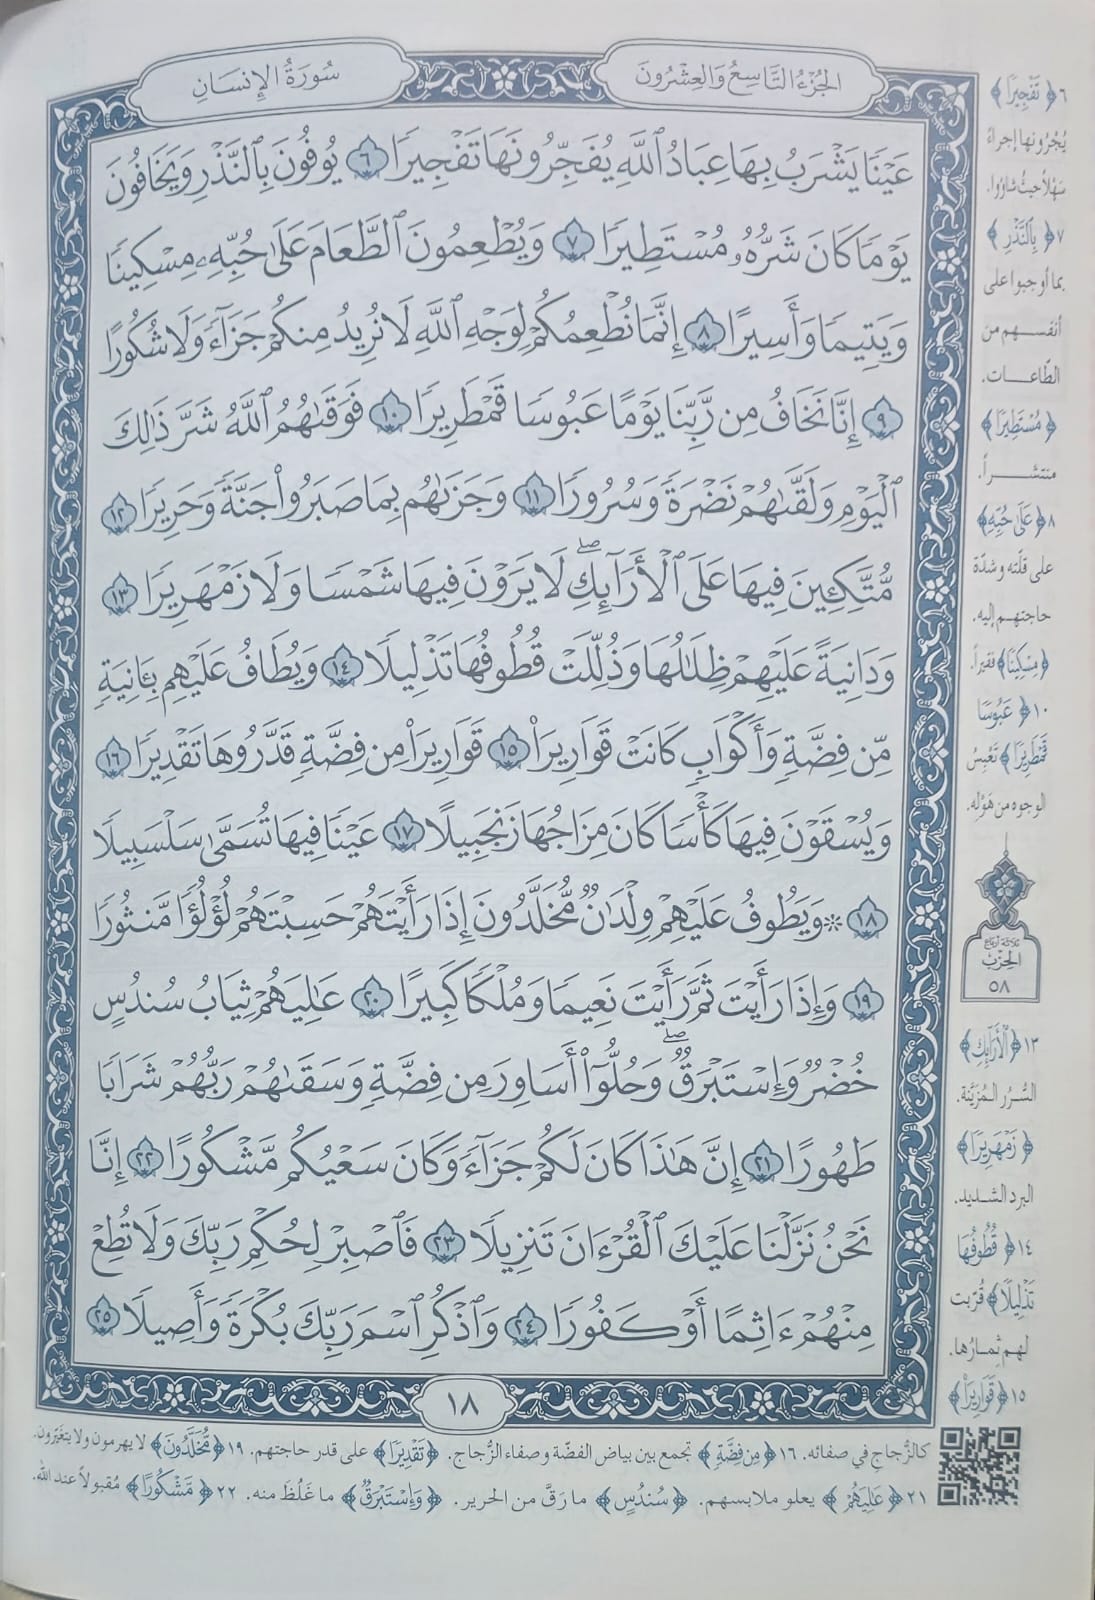 الجُزْءُ التَّاسِعُ وَالعِشْرُونَ
سُورَةُ الإِنسَانِ
عَيْنًا يَشْرَبُ بِهَا عِبَادُ ٱللَّهِ يُفَجِّرُونَهَا تَفْجِيرًا ٦ يُوفُونَ بِٱلنَّذْرِ وَيَخَافُونَ
يَوْمًا كَانَ شَرُّهُۥ مُسْتَطِيرًا ٧ وَيُطْعِمُونَ ٱلطَّعَامَ عَلَىٰ حُبِّهِۦ مِسْكِينًا
وَيَتِيمًا وَأَسِيرًا ٨ إِنَّمَا نُطْعِمُكُمْ لِوَجْهِ ٱللَّهِ لَا نُرِيدُ مِنكُمْ جَزَآءً وَلَا شُكُورًا
٩ إِنَّا نَخَافُ مِن رَّبِّنَا يَوْمًا عَبُوسًا قَمْطَرِيرًا ١٠ فَوَقَىٰهُمُ ٱللَّهُ شَرَّ ذَٰلِكَ
ٱلْيَوْمِ وَلَقَّىٰهُمْ نَضْرَةً وَسُرُورًا ١١ وَجَزَىٰهُم بِمَا صَبَرُوا۟ جَنَّةً وَحَرِيرًا ١٢
مُّتَّكِـِٔينَ فِيهَا عَلَى ٱلْأَرَآئِكِ ۖ لَا يَرَوْنَ فِيهَا شَمْسًا وَلَا زَمْهَرِيرًا ١٣
وَدَانِيَةً عَلَيْهِمْ ظِلَٰلُهَا وَذُلِّلَتْ قُطُوفُهَا تَذْلِيلًا ١٤ وَيُطَافُ عَلَيْهِم بِـَٔانِيَةٍ
مِّن فِضَّةٍ وَأَكْوَابٍ كَانَتْ قَوَارِيرَا۠ ١٥ قَوَارِيرَا۟ مِن فِضَّةٍ قَدَّرُوهَا تَقْدِيرًا ١٦
وَيُسْقَوْنَ فِيهَا كَأْسًا كَانَ مِزَاجُهَا زَنجَبِيلًا ١٧ عَيْنًا فِيهَا تُسَمَّىٰ سَلْسَبِيلًا
١٨ ۞ وَيَطُوفُ عَلَيْهِمْ وِلْدَٰنٌ مُّخَلَّدُونَ إِذَا رَأَيْتَهُمْ حَسِبْتَهُمْ لُؤْلُؤًا مَّنثُورًا
١٩ وَإِذَا رَأَيْتَ ثَمَّ رَأَيْتَ نَعِيمًا وَمُلْكًا كَبِيرًا ٢٠ عَٰلِيَهُمْ ثِيَابُ سُندُسٍ
خُضْرٌ وَإِسْتَبْرَقٌ ۖ وَحُلُّوٓا۟ أَسَاوِرَ مِن فِضَّةٍ وَسَقَىٰهُمْ رَبُّهُمْ شَرَابًا
طَهُورًا ٢١ إِنَّ هَٰذَا كَانَ لَكُمْ جَزَآءً وَكَانَ سَعْيُكُم مَّشْكُورًا ٢٢ إِنَّا
نَحْنُ نَزَّلْنَا عَلَيْكَ ٱلْقُرْءَانَ تَنزِيلًا ٢٣ فَٱصْبِرْ لِحُكْمِ رَبِّكَ وَلَا تُطِعْ
مِنْهُمْ ءَاثِمًا أَوْ كَفُورًا ٢٤ وَٱذْكُرِ ٱسْمَ رَبِّكَ بُكْرَةً وَأَصِيلًا ٢٥
١٨
٦﴿تَفْجِيرًا﴾
يُجْرُونها إجراءً
سَهْلاً حيثُ شاؤوا.
٧﴿بِٱلنَّذْرِ﴾
بما أوجبوا على
أنفسهم من
الطّاعات.
﴿مُسْتَطِيرًا﴾
منتشراً.
٨﴿عَلَىٰ حُبِّهِ﴾
على قلّته وشدّة
حاجتهم إليه.
﴿مِسْكِينًا﴾ فقيراً.
١٠﴿عَبُوسًا
قَمْطَرِيرًا﴾ تَعْبِسُ
الوجوه من هَوْله.
ثلاثة أرباع
الحِزْبِ
٥٨
١٣﴿ٱلْأَرَآئِكِ﴾
السُّرُر المُزَيَّنة.
﴿زَمْهَرِيرًا﴾
البرد الشديد.
١٤﴿قُطُوفُهَا
تَذْلِيلًا﴾ قُرِّبت
لهم ثِمارُها.
١٥﴿قَوَارِيرَا۠﴾
كالزُّجاجِ في صفائه. ١٦﴿مِن فِضَّةٍ﴾ تجمع بين بياض الفضّة وصفاء الزُّجاج. ﴿تَقْدِيرًا﴾ على قدر حاجتهم. ١٩﴿مُّخَلَّدُونَ﴾ لا يهرمون ولا يتغيّرون.
٢١﴿عَٰلِيَهُمْ﴾ يعلو ملابسهم. ﴿سُندُسٍ﴾ ما رَقَّ من الحرير. ﴿وَإِسْتَبْرَقٌ﴾ ما غَلُظَ منه. ٢٢﴿مَّشْكُورًا﴾ مُقبولاً عند الله.